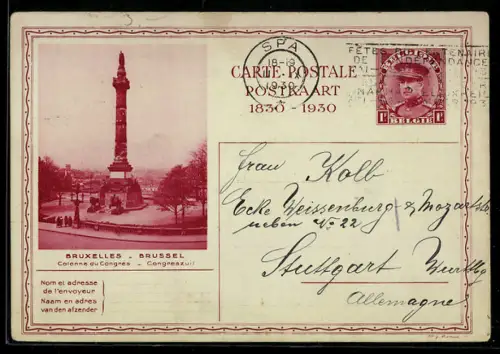 SPA
18-19
1930
FÊTES DU CENTENAIRE
DE L'INDÉPENDANCE
CARTE POSTALE
POSTKAART
1830 - 1930
1F BELGIE 1F
BRUXELLES - BRUSSEL
Colonne du Congrès - Congreszuil
Nom et adresse
de l'envoyeur
Naam en adres
van den afzender
Frau Kolb
Ecke Weissenburg & Mozartstr
neben No. 22
Stuttgart Wurttbg
Allemagne